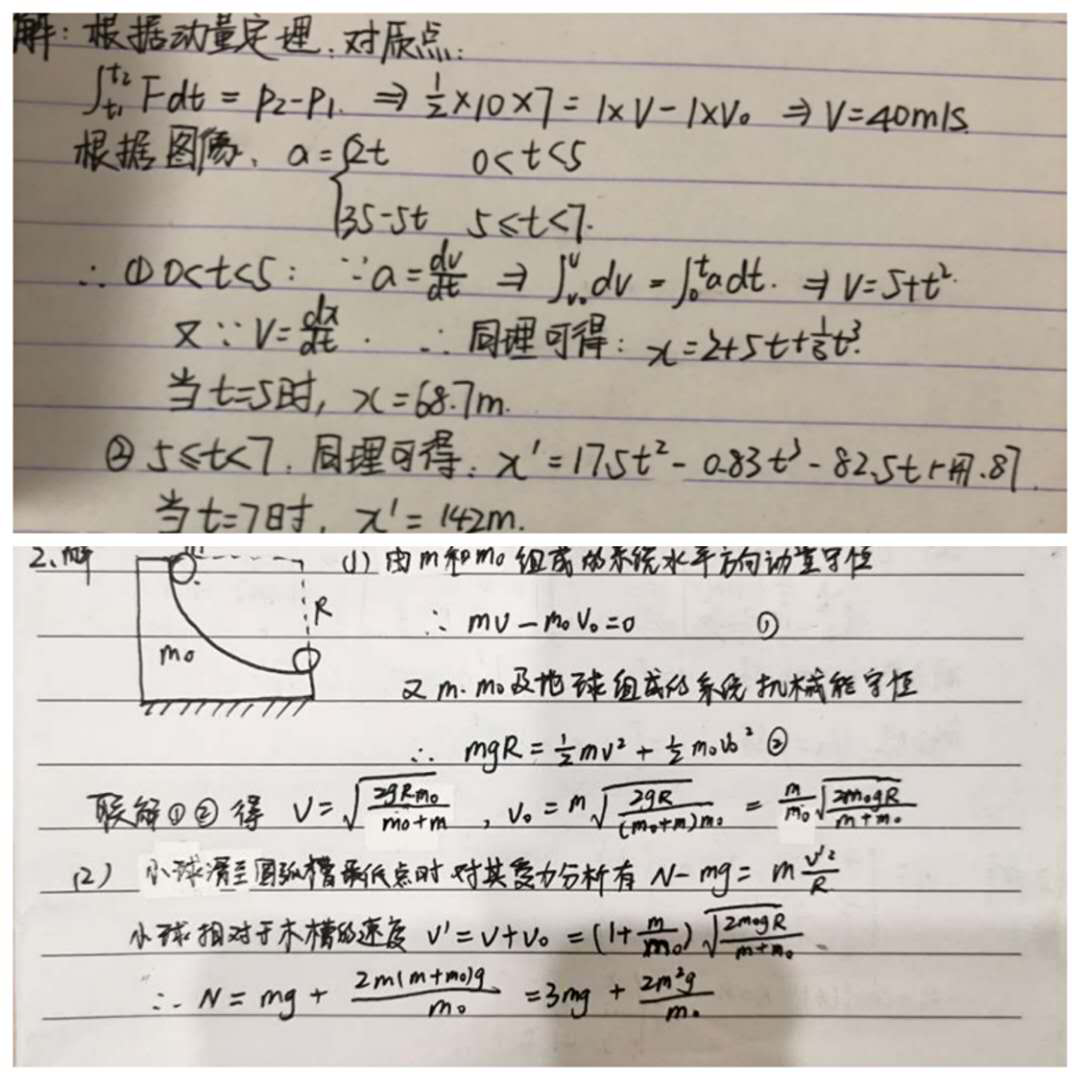 解：根据动量定理，对质点：
∫_{t₁}^{t₂} Fdt = P₂-P₁ ⇒ ½×10×7 = 1×V-1×V₀ ⇒ V=40m/s
根据图像，a={2t 0<t<5
35-5t 5≤t<7.
∴ ① 0<t<5： ∵a=dv/dt ⇒ ∫_{v₀}^{v} dv = ∫₀^t adt. ⇒ V=5+t².
又∵V=dx/dt. ∴ 同理可得：x=2+5t+⅓t³.
当t=5时，x=68.7m.
② 5≤t<7. 同理可得：x'=17.5t²-0.83t³-82.5t+.87.
当t=7时，x'=142m.
2、解 (1) 由m和m₀组成的系统水平方向动量守恒
m
R
∴ mv-m₀v₀=0 ①
m₀
又m.m₀及地球组成的系统机械能守恒
∴ mgR=½mv²+½m₀v₀² ②
联解①②得 V=√(2gRm₀/(m₀+m)), v₀=m√(2gR/((m₀+m)m₀)) = m/m₀ √(2m₀gR/(m+m₀))
(2) 小球滑至圆弧槽最低点时对其受力分析有 N-mg=m v'²/R
小球相对于木槽的速度 v'=v+v₀=(1+m/m₀)√(2m₀gR/(m+m₀)).
∴ N=mg+2m(m+m₀)g/m₀ =3mg+2m²g/m₀